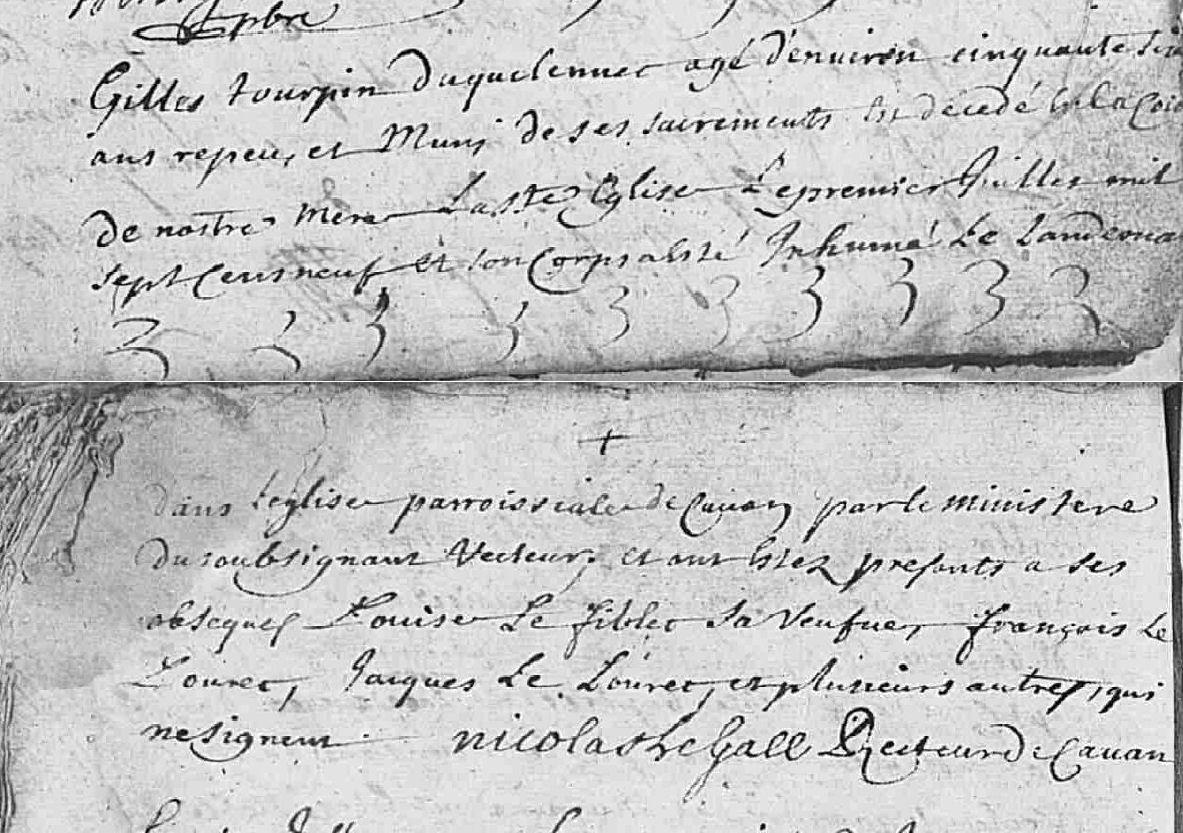 pbre
Gilles tourpin duquelennec agé d'environ cinquante six
ans repeu, et Muny de ses sacrements Est decedé En la
de nostre mere La Ste Eglise Le premier Juillet mil
sept Cens neuf et son Corps a Esté Inhumé Le Landemain
+
dans l'eglise parroissiale de Cavan par le ministere
du soubsignant Recteur, et ont Estez presents a ses
obseques Louise Le fiblec sa Veufue, françois Le
Lourec, Jacques Le Lourec, et plusieurs autres, qui
ne signent nicolas Le Gall Recteur de Cavan